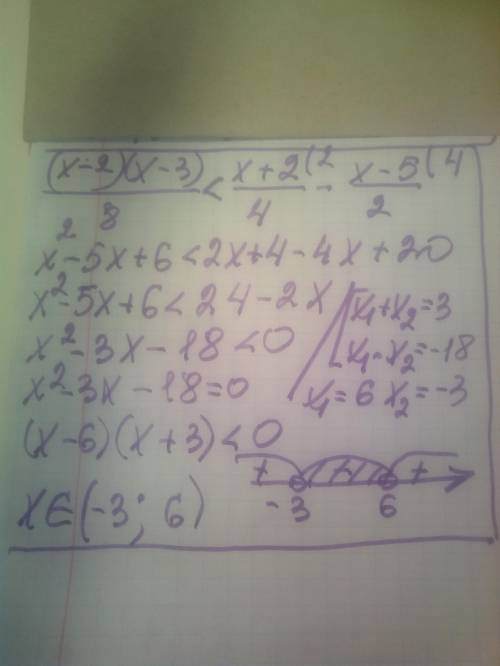 (x-2)(x-3)/8 < x+2(2/4 - x-5(4/2
x²-5x+6<2x+4-4x+20
x²-5x+6<24-2x
x²-3x-18<0
x²-3x-18=0
x₁+x₂=3
x₁·x₂=-18
x₁=6 x₂=-3
(x-6)(x+3)<0
+ - +
-3 6
x∈(-3; 6)